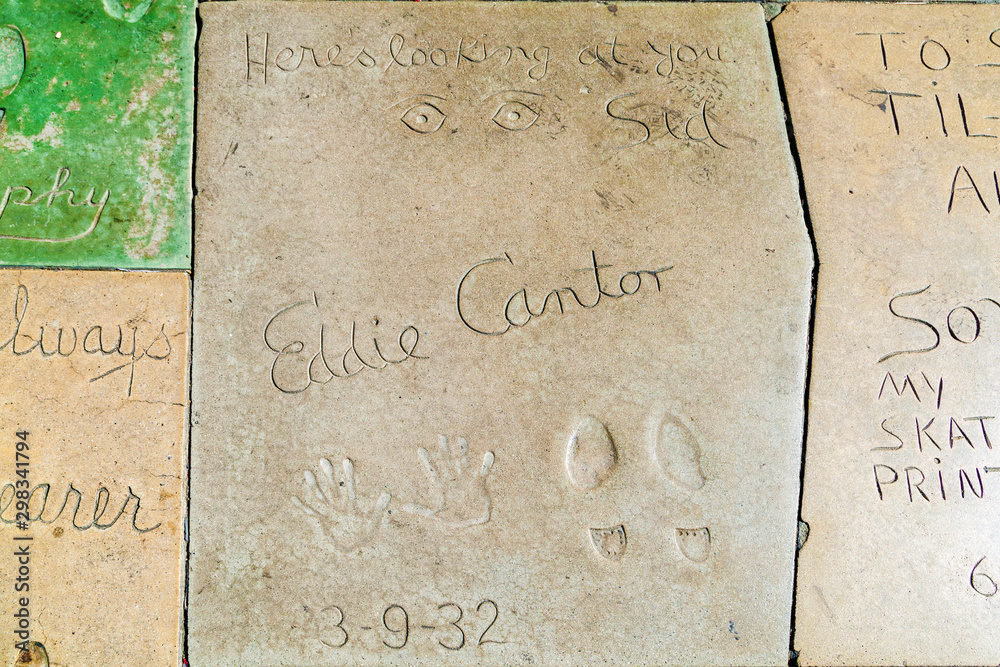 Here's looking at you.
Sid
Eddie Cantor
3-9-32
phy
always
earer
TO S
TIL
A
So
MY
SKAT
PRINT
6
Adobe Stock | #298341794